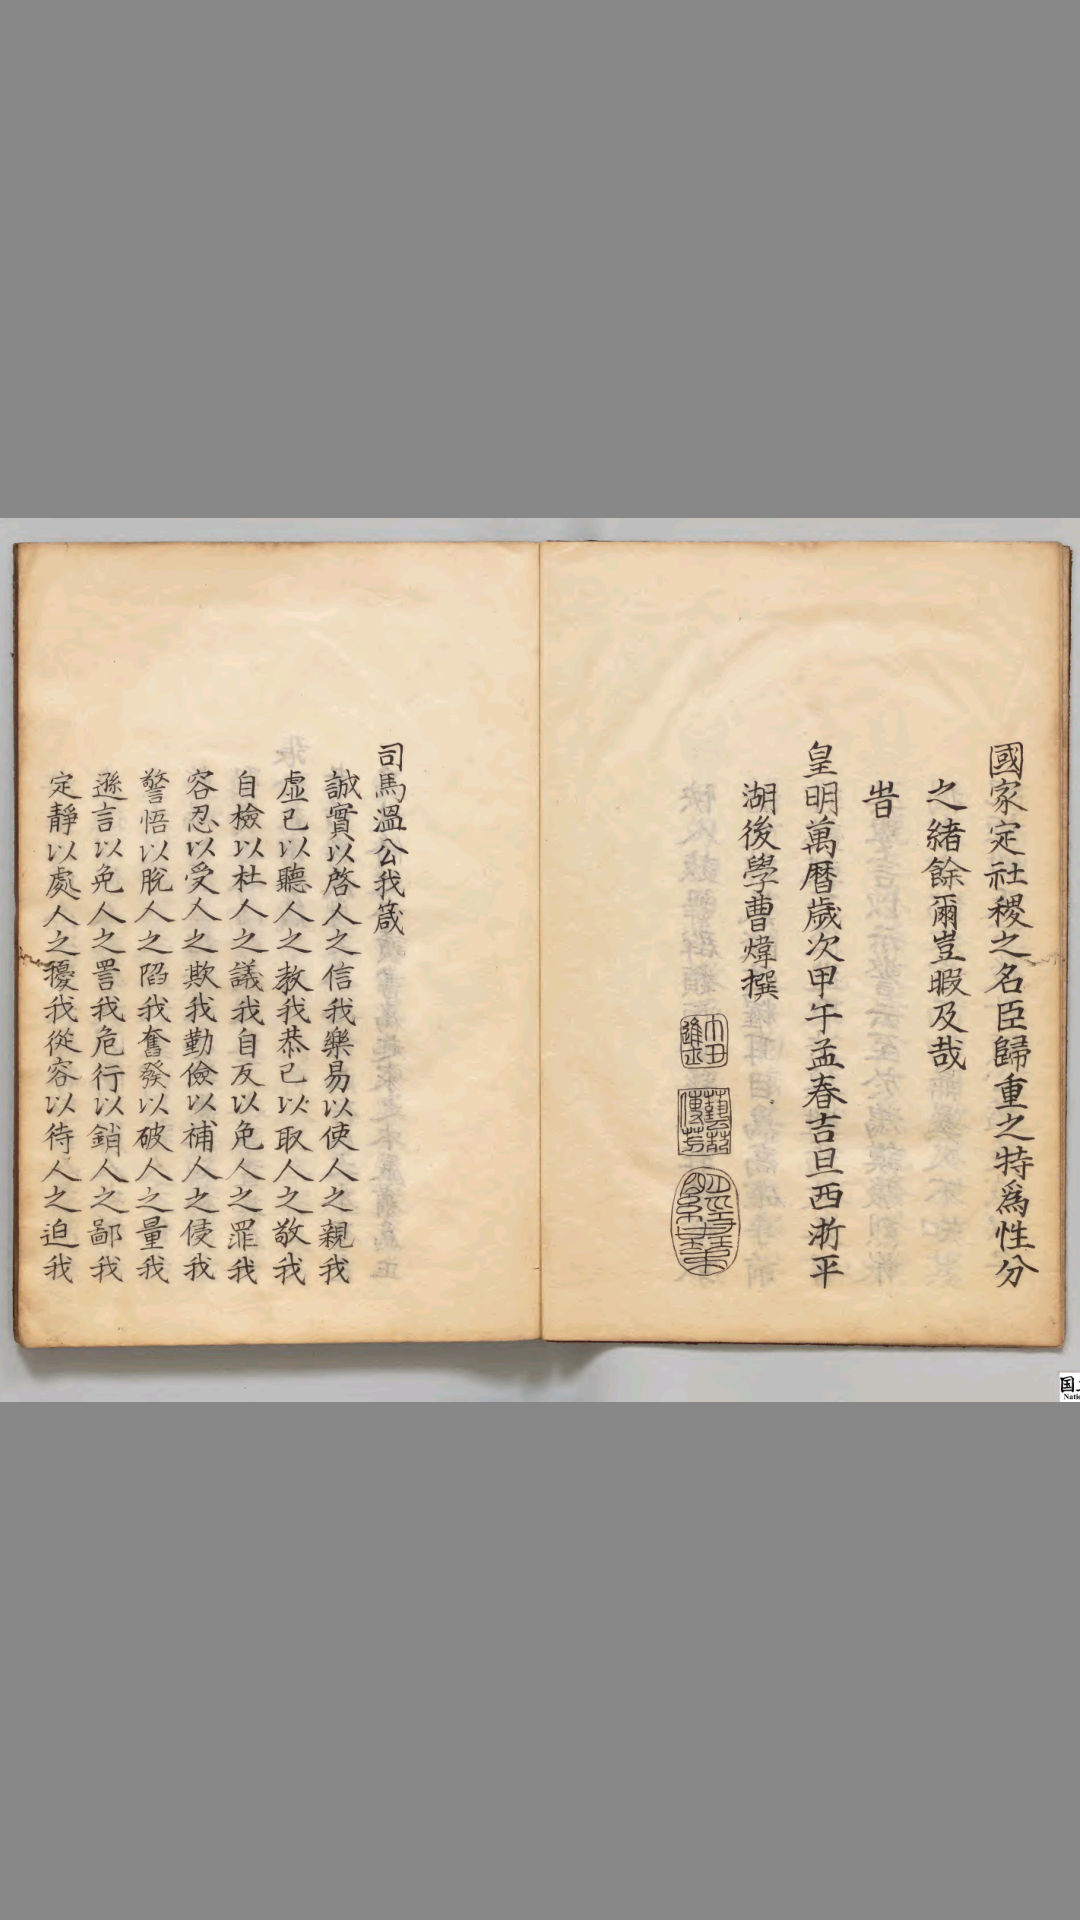 國家定社稷之名臣歸重之特爲性分
之緒餘爾豈暇及哉
旹
皇明萬曆歲次甲午孟春吉旦西浙平
湖後學曹煒撰
司馬溫公我箴
誠實以啓人之信我樂易以使人之親我
虛己以聽人之教我恭己以取人之敬我
自檢以杜人之議我自反以免人之罪我
容忍以受人之欺我勤儉以補人之侵我
警悟以脫人之陷我奮發以破人之量我
遜言以免人之詈我危行以銷人之鄙我
定靜以處人之擾我從容以待人之迫我